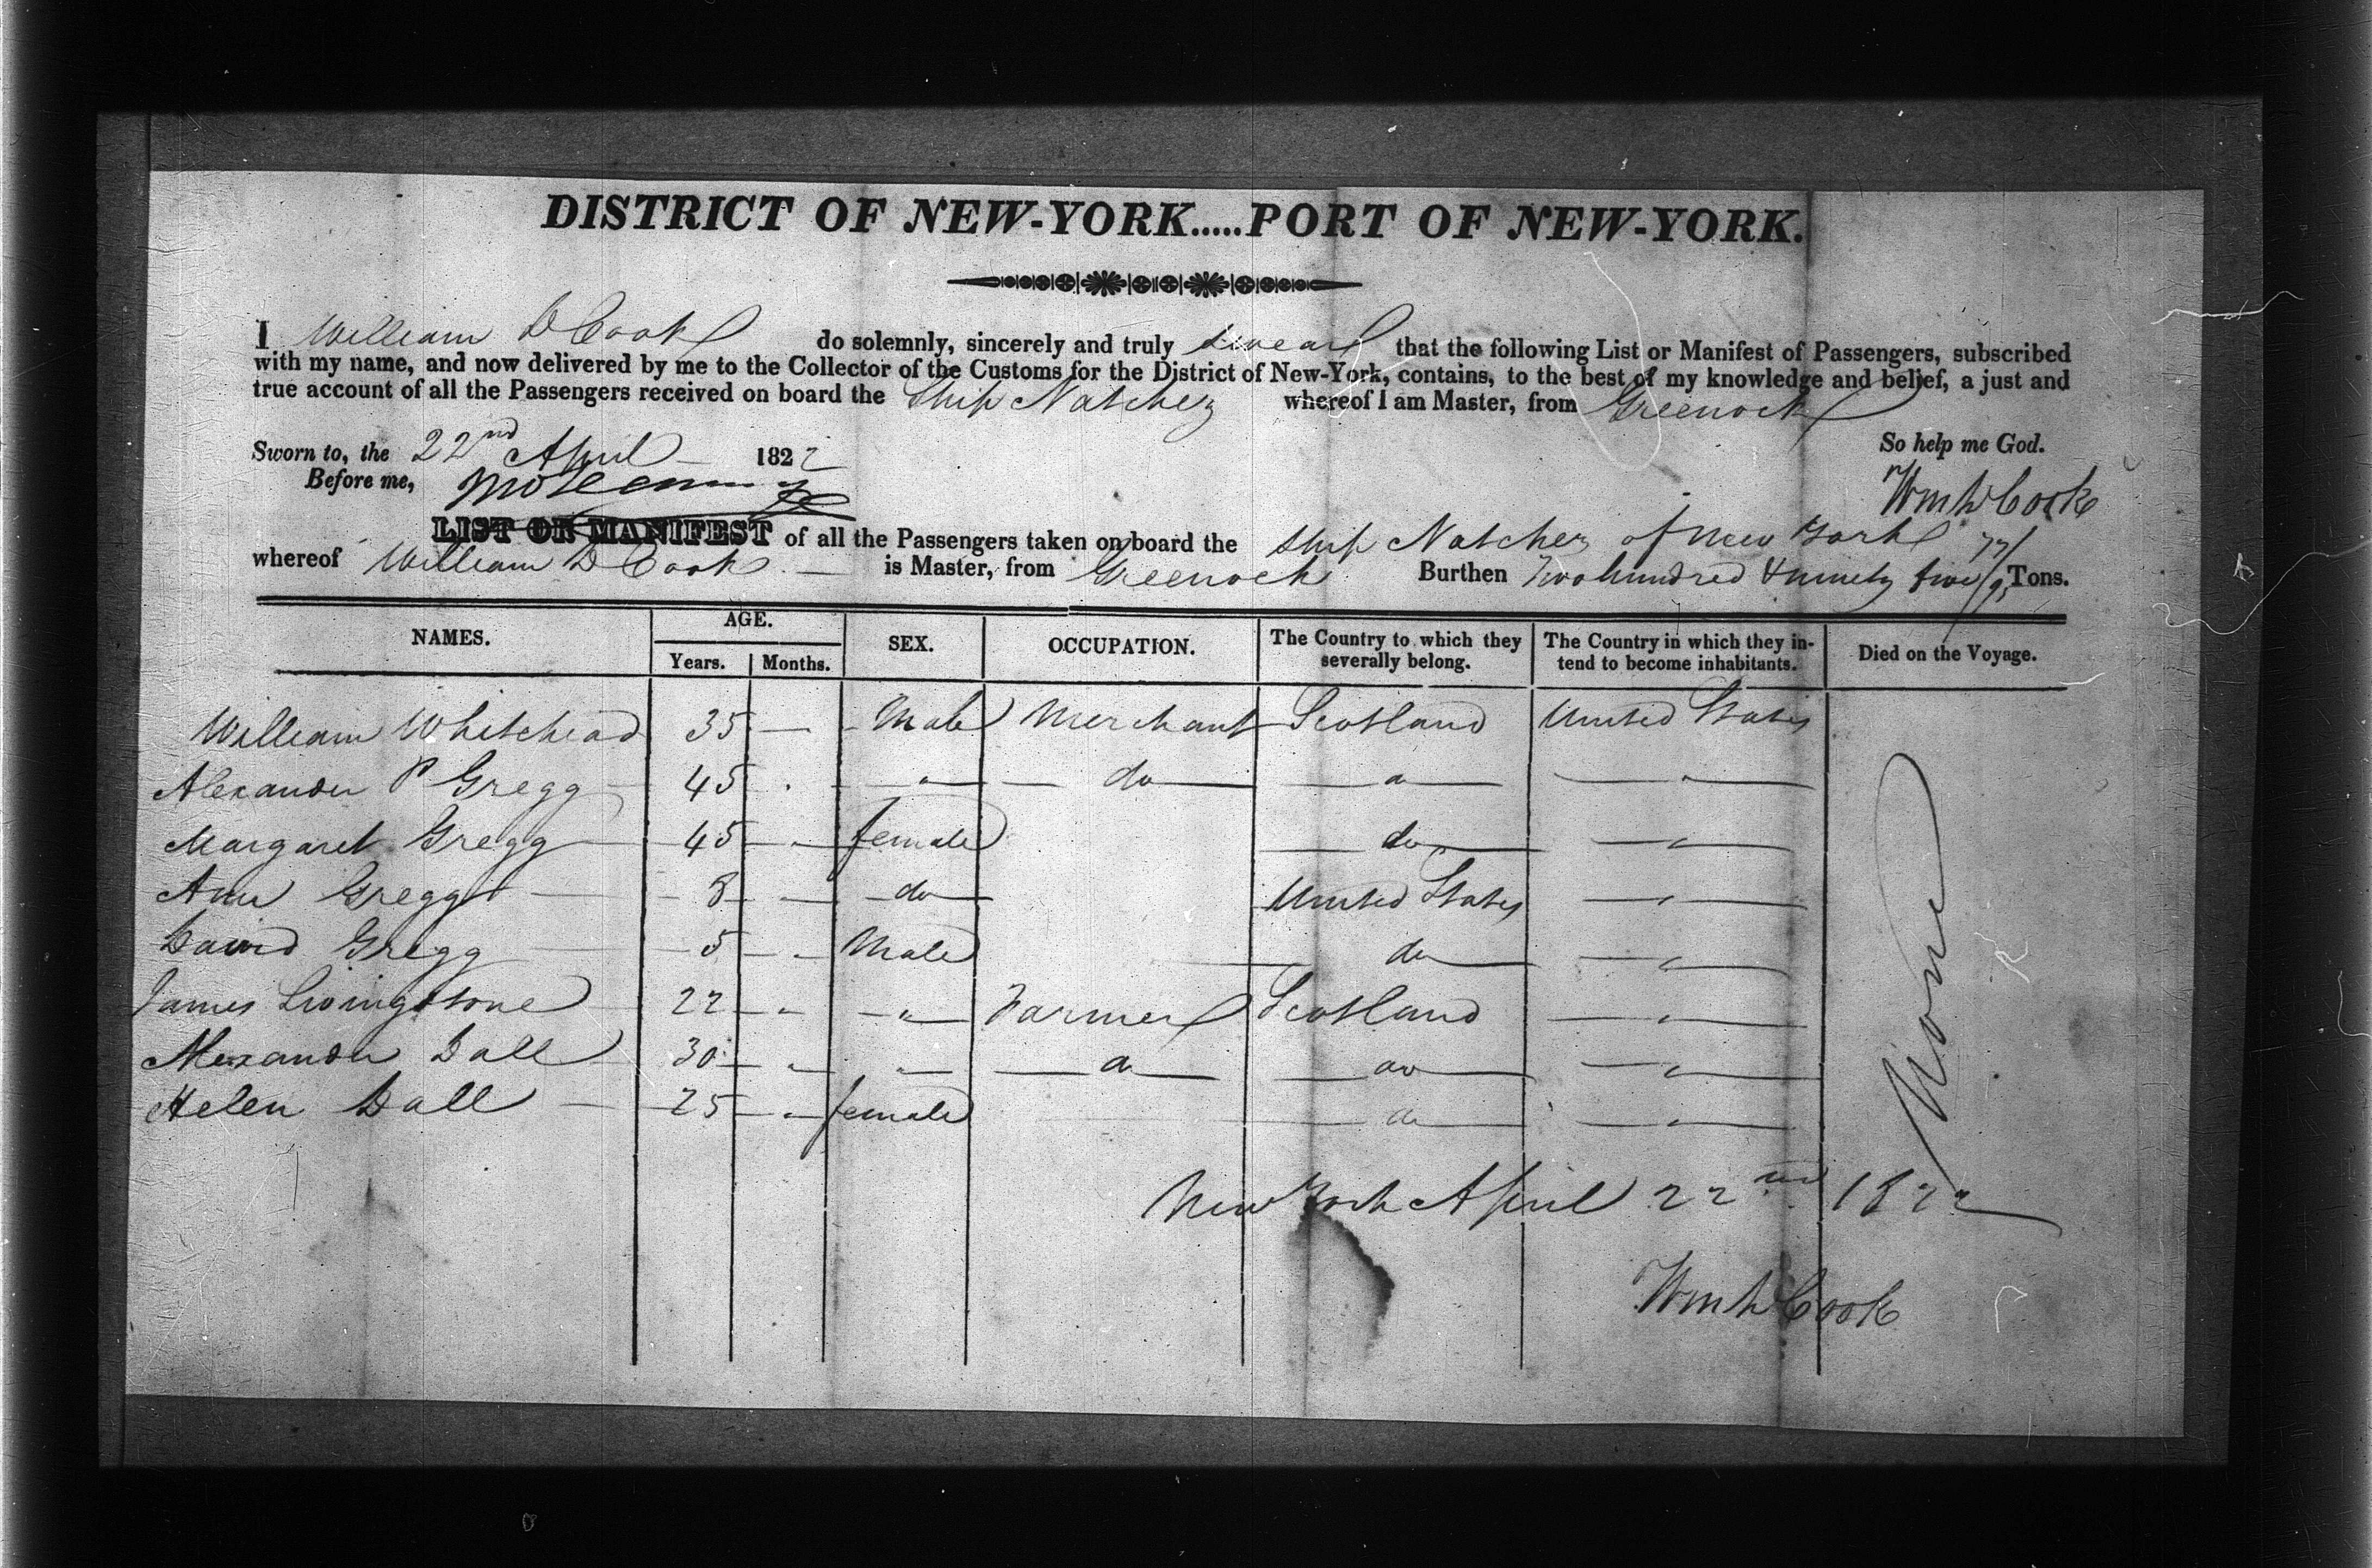 DISTRICT OF NEW-YORK.....PORT OF NEW-YORK.
I William D Cook do solemnly, sincerely and truly swear that the following List or Manifest of Passengers, subscribed
with my name, and now delivered by me to the Collector of the Customs for the District of New-York, contains, to the best of my knowledge and belief, a just and
true account of all the Passengers received on board the Ship Natchez whereof I am Master, from Greenock
So help me God.
Sworn to, the 22nd April 1822
Before me,
Wm D Cook
LIST OR MANIFEST of all the Passengers taken on board the Ship Natchez of New York
whereof William D Cook is Master, from Greenock Burthen Two hundred & ninety five Tons.
NAMES. AGE. SEX. OCCUPATION. The Country to which they severally belong. The Country in which they intend to become inhabitants. Died on the Voyage.
Years. Months.
William Whitehead 35 — Male Merchant Scotland United States
Alexander P Gregg 45 " " do " "
Margaret Gregg 45 " female do "
Ann Gregg 8 — do United States "
David Gregg 5 " Male do "
James Livingstone 22 " " Farmer Scotland "
Alexander Dall 30 " " do do "
Helen Dall 25 " female do "
None
New York April 22nd 1822
Wm D Cook